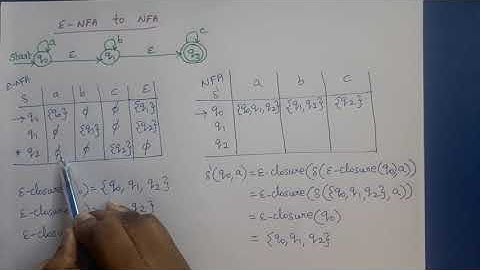 ε-NFA to NFA
a b c
Start q0 ε q1 ε q2
ε-NFA
δ a b c ε
→ q0 {q0} ϕ ϕ {q1}
q1 ϕ {q1} ϕ {q2}
* q2 ϕ ϕ {q2} ϕ
ε-closure(q0) = {q0, q1, q2}
ε-closure ) = q2}
ε-closu
NFA
δ' a b c
→ q0 {q0,q1,q2} {q1,q2} {q2}
q1
q2
δ'(q0,a) = ε-closure(δ(ε-closure(q0)a))
= ε-closure(δ({q0,q1,q2},a))
= ε-closure(q0)
= {q0,q1,q2}